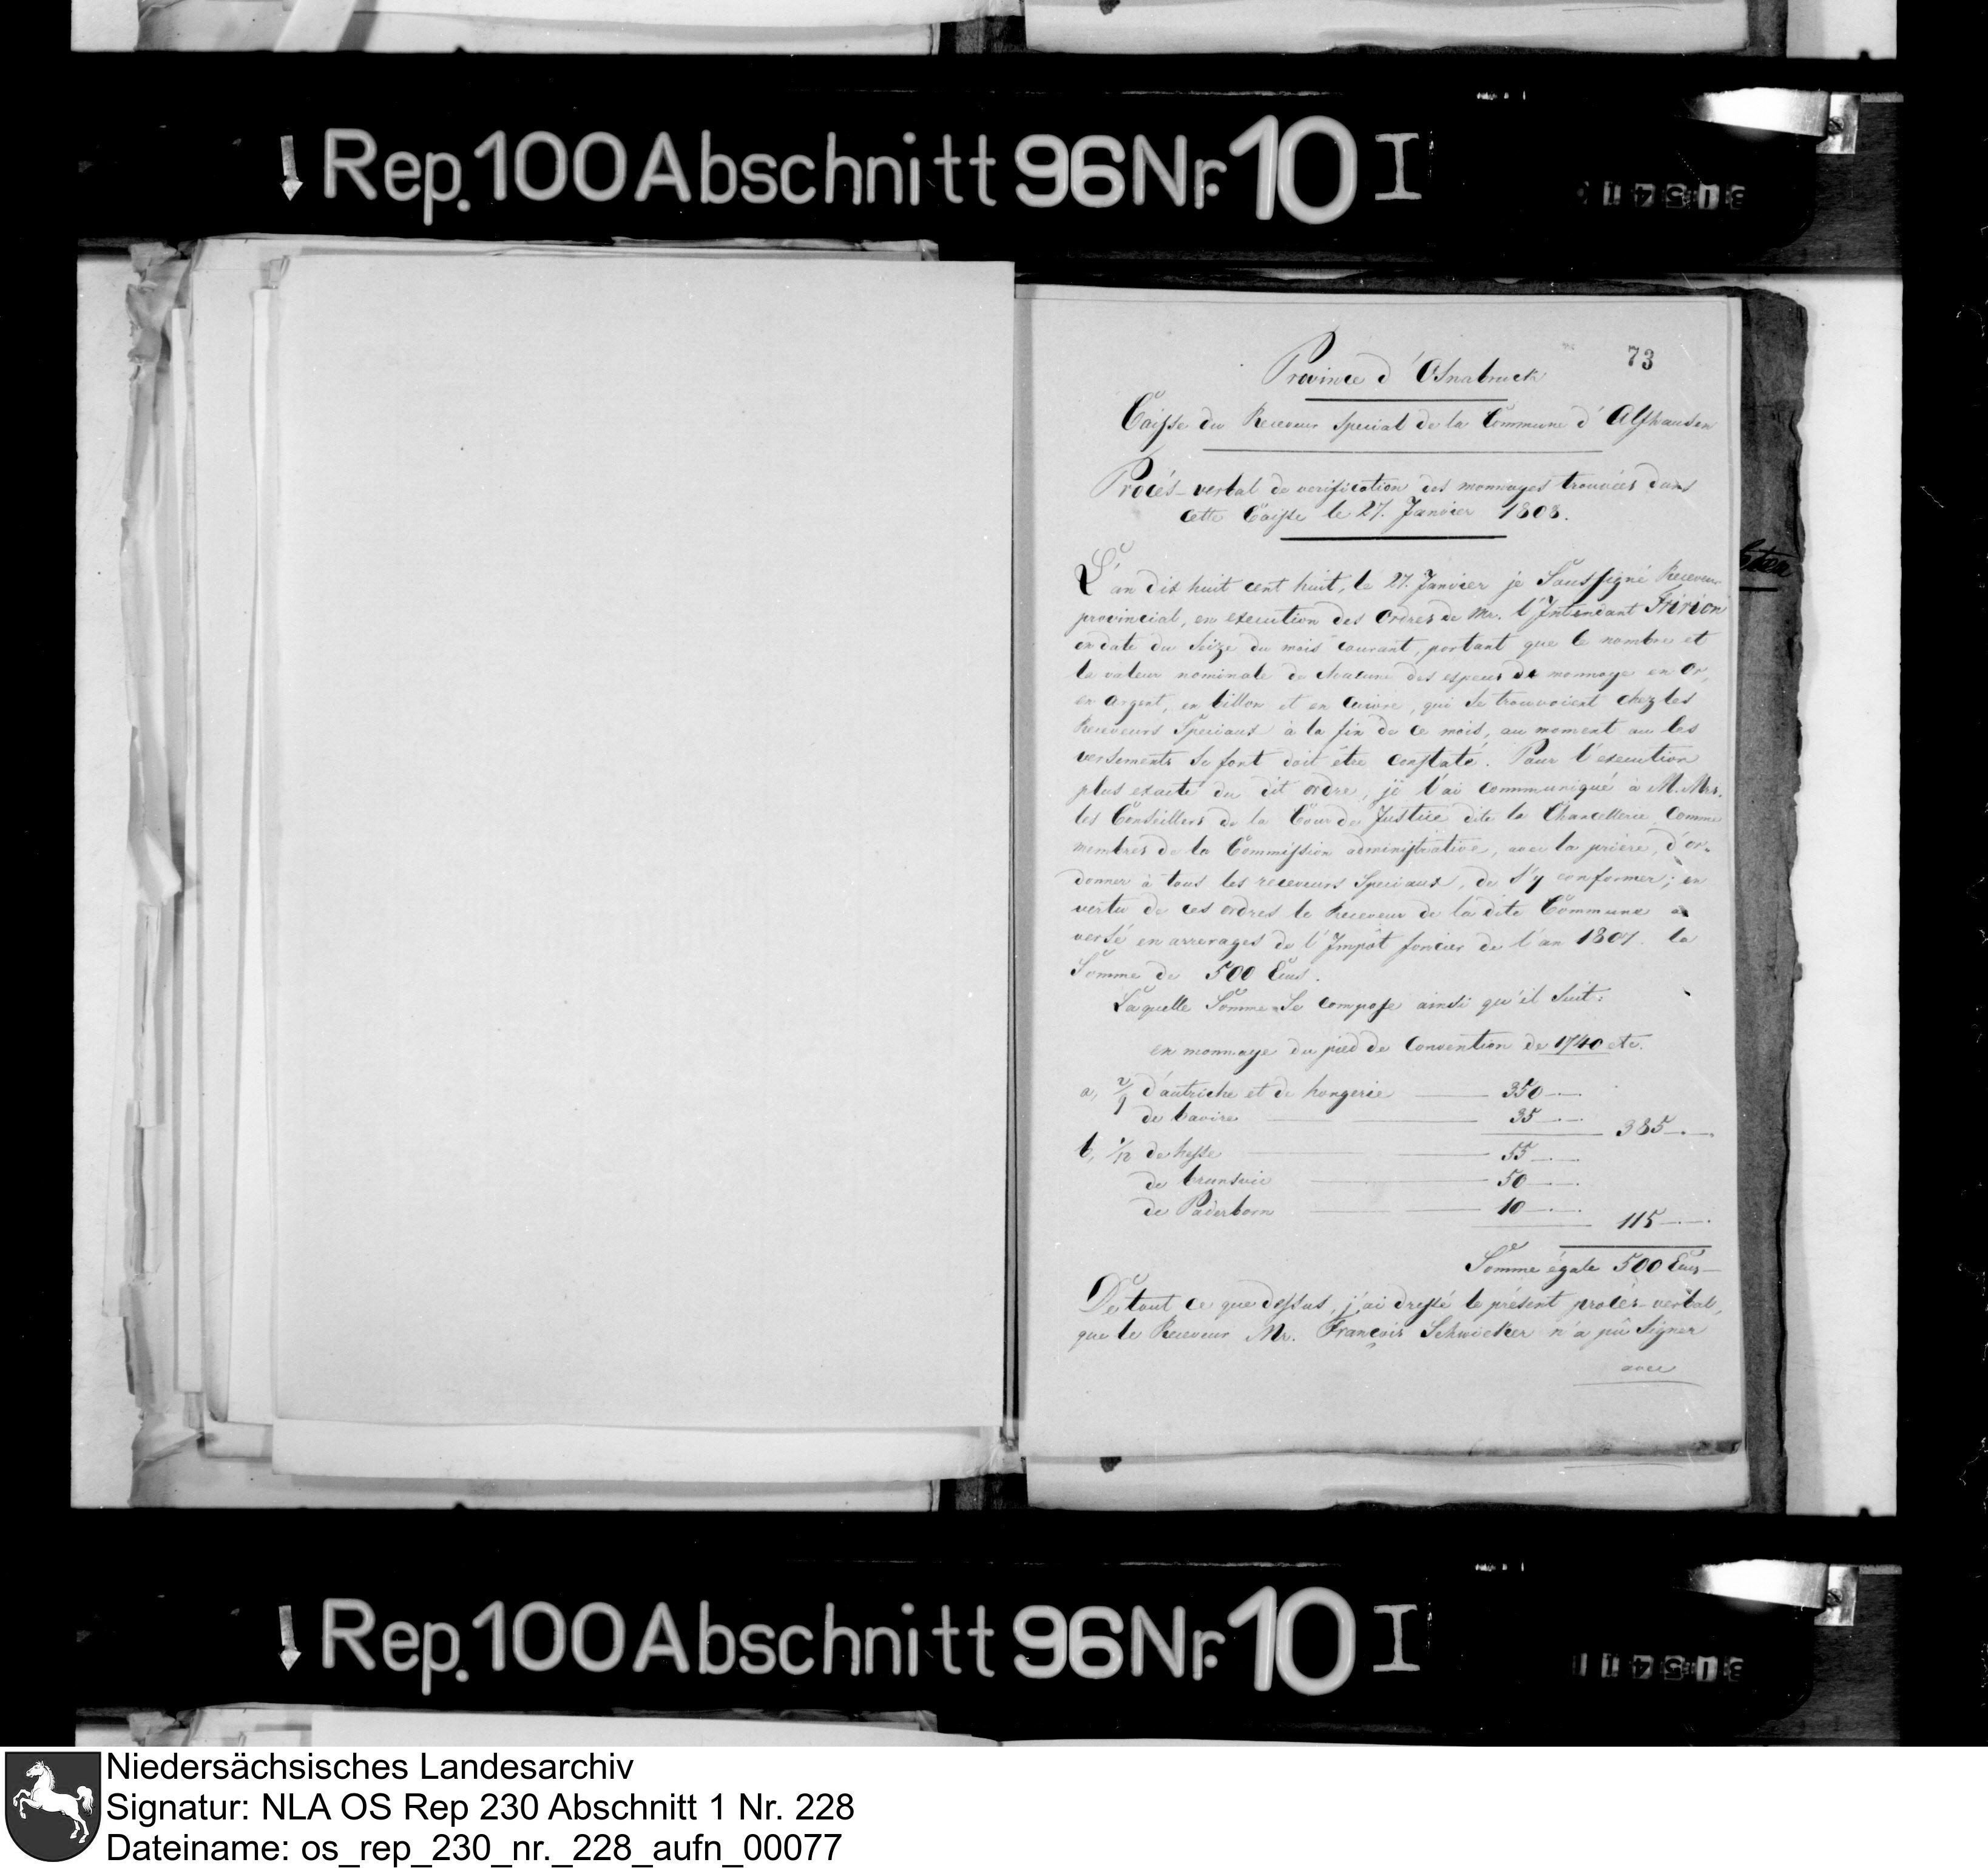 Rep. 100 Abschnitt 96 Nr. 10 I
73
Province d'Osnabruck
Caisse du Receveur Special de la Commune d'Alfhausen
Procés-verbal de verification des monnayes trouvées dans
cette Caisse le 27. Janvier 1808.
L'an dix huit cent huit, le 27. Janvier je Soussigné Receveur
provincial, en execution des Ordres de Mr. l'Intendant Fririon
en date du Seize du mois courant, portant que le nombre et
la valeur nominale de chacune des especes de monnaye en Or,
en Argent, en billon et en Cuivre, qui se trouvoient chez les
Receveurs Speciaux à la fin de ce mois, au moment ou les
versements se font doit être constaté. Pour l'execution
plus exacte du dit ordre, je l'ai communiqué à M. Mrs.
les Conseillers de la Cour de Justice dite la Chancellerie comme
membres de la Commission administrative, avec la prière, d'or-
donner à tous les receveurs Speciaux, de s'y conformer; en
vertu de ces ordres le Receveur de la dite Commune a
versé en arrerages de l'Impôt foncier de l'an 1807. la
Somme de 500 Ecus.
Laquelle Somme Se compose ainsi qu'il Suit:
en monnaye du pied de Convention de 1740 etc.
a, 2/3 d'autriche et de hongerie 350
de bavire 35 385
b, 1/12 de hesse 55
de brunsvic 50
de Paderborn 10
115
Somme égale 500 Ecus
De tout ce que dessus, j'ai dressé le présent procès-verbal,
que le Receveur Mr. François Schwicker n'a pû Signer
avec
Rep. 100 Abschnitt 96 Nr. 10 I
Niedersächsisches Landesarchiv
Signatur: NLA OS Rep 230 Abschnitt 1 Nr. 228
Dateiname: os_rep_230_nr._228_aufn_00077